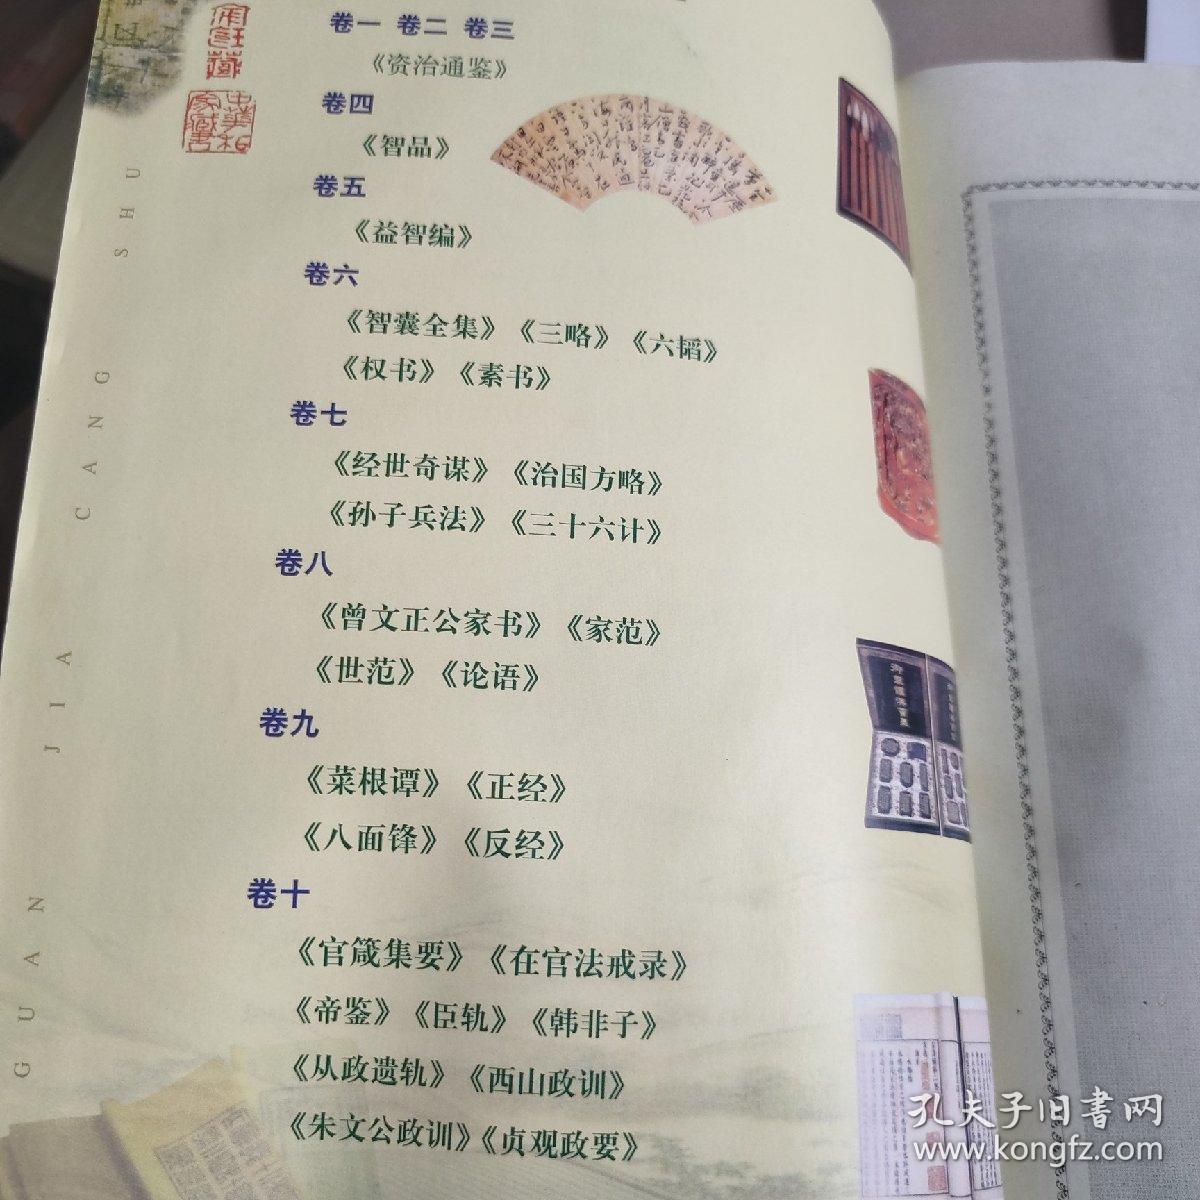 卷一 卷二 卷三
《资治通鉴》
卷四
《智品》
卷五
《益智编》
卷六
《智囊全集》《三略》《六韬》
《权书》《素书》
卷七
《经世奇谋》《治国方略》
《孙子兵法》《三十六计》
卷八
《曾文正公家书》《家范》
《世范》《论语》
卷九
《菜根谭》《正经》
《八面锋》《反经》
卷十
《官箴集要》《在官法戒录》
《帝鉴》《臣轨》《韩非子》
《从政遗轨》《西山政训》
《朱文公政训》《贞观政要》
GUAN JIA CANG SHU
孔夫子旧书网
www.kongfz.com